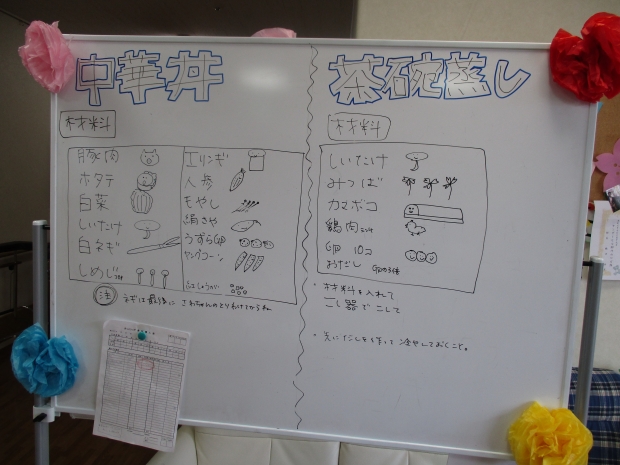 中華丼
材料
豚肉
ホタテ
白菜
しいたけ
白ネギ
しめじ
エリンギ
人参
もやし
絹さや
うずらGP
ヤングコーン
注 ネギは最後に
茶碗蒸し
材料
しいたけ
みつば
カマボコ
鶏肉
GP 10コ
おだし GPの3倍
・材料を入れて
こし器でこして
・先にだしを作って冷やしておくこと。